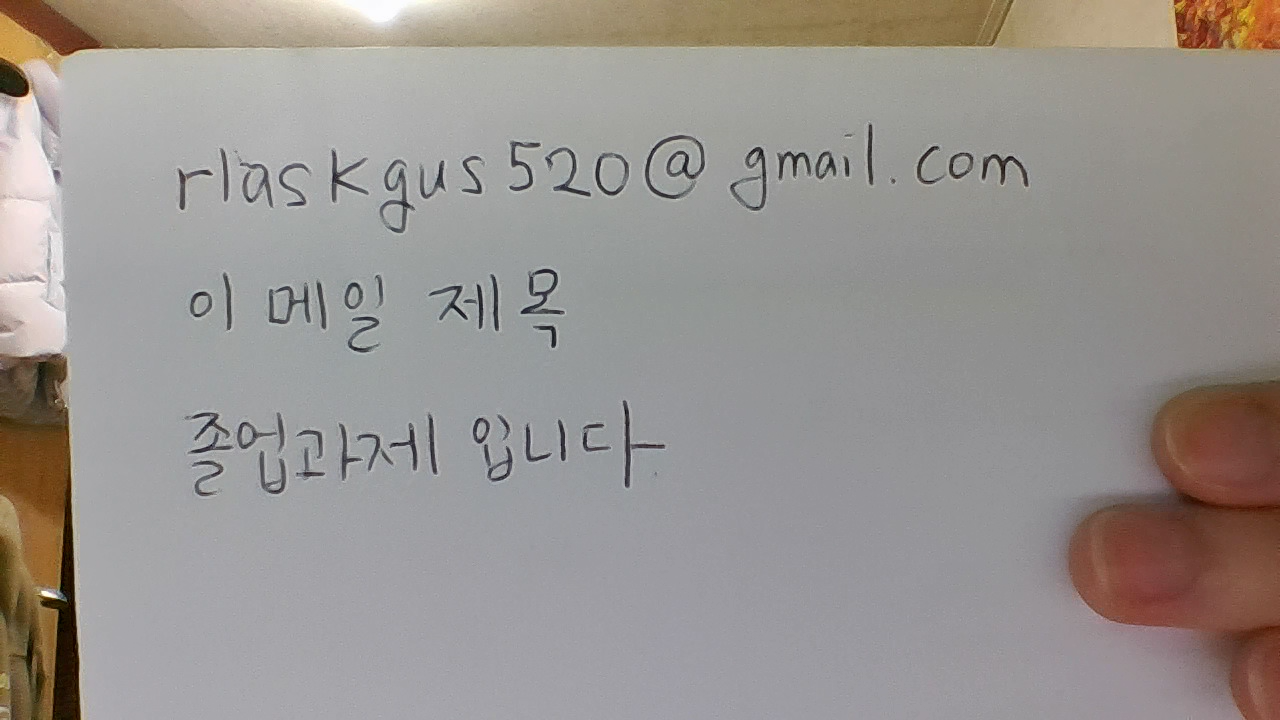 rlaskgus520@gmail.com
이 메일 제목
졸업과제 입니다